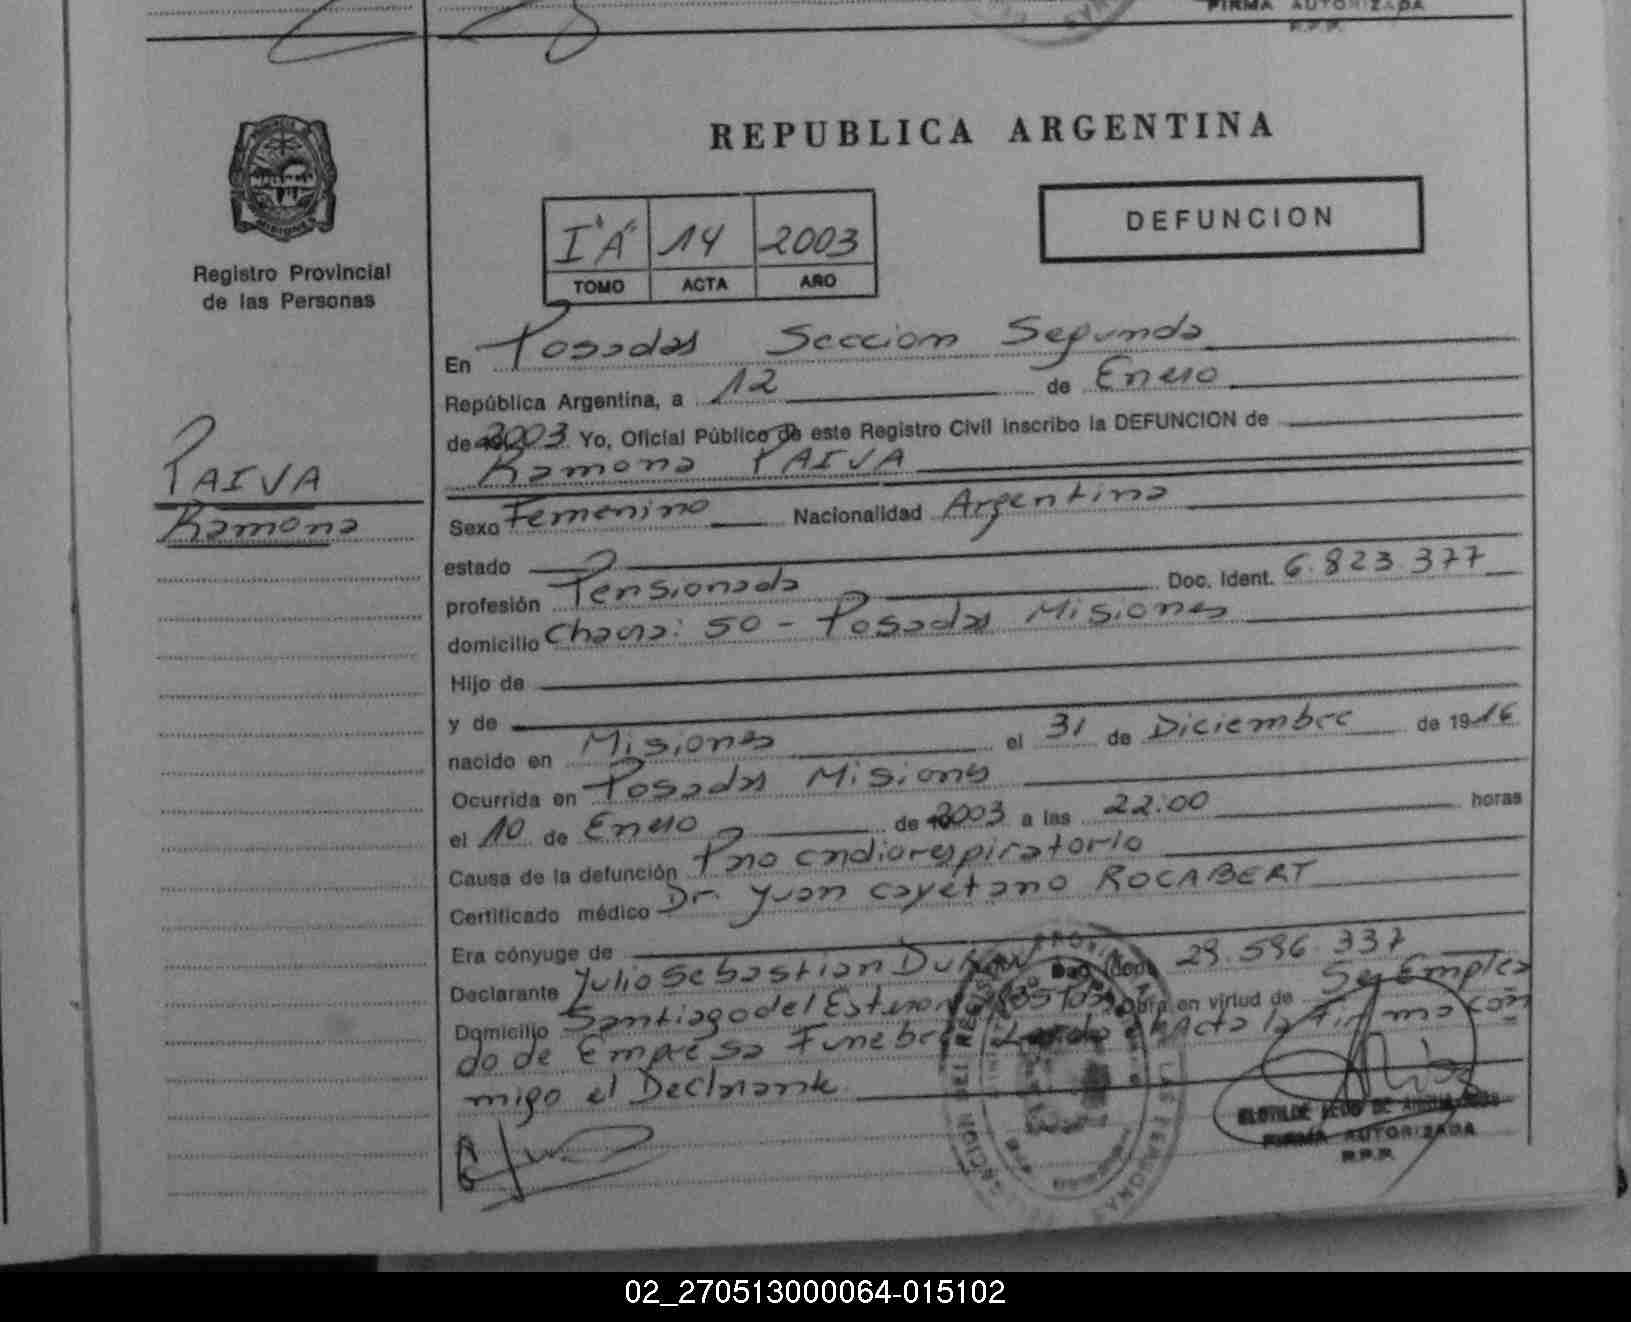 FIRMA AUTORIZADA
R.P.P.
REPUBLICA ARGENTINA
I "A" 14 2003
TOMO ACTA AÑO
DEFUNCION
Registro Provincial
de las Personas
PAIVA
Ramona
En Posadas Seccion Segunda
República Argentina, a 12 de Enero
de 2003 Yo, Oficial Público de este Registro Civil inscribo la DEFUNCION de
Ramona PAIVA
Sexo Femenino Nacionalidad Argentina
estado
profesión Pensionada Doc. Ident. 6.823.377
domicilio Chacra: 50 - Posadas Misiones
Hijo de
y de
nacido en Misiones el 31 de Diciembre de 1916
Ocurrida en Posadas Misiones
el 10 de Enero de 2003 a las 22:00 horas
Causa de la defunción Paro cardiorespiratorio
Certificado médico Dr. Juan Cayetano ROCABERT
Era cónyuge de
Declarante Julio Sebastian 29.596.337
Domicilio Santiago del Estero Obra en virtud de Ser Emplea
do de Empresa Funebre Acta la Firma con
migo el Declarante
FIRMA AUTORIZADA
R.P.P.
02_270513000064-015102